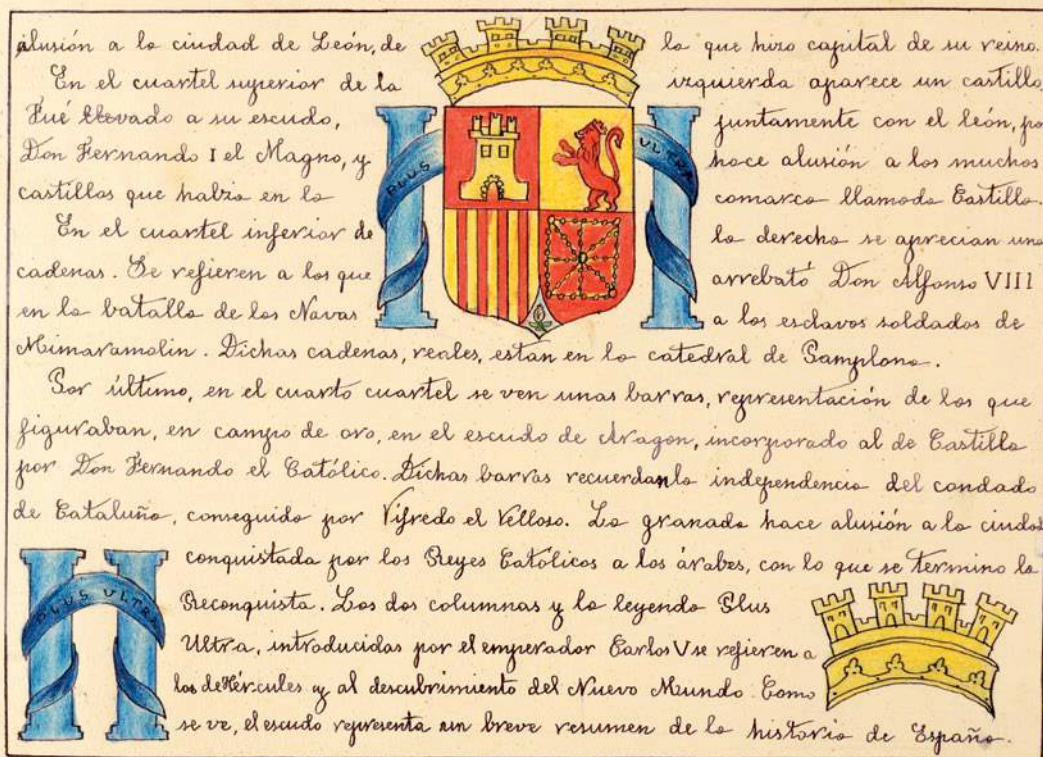 alusión a la ciudad de León, de la que hizo capital de su reino.
En el cuartel superior de la izquierda aparece un castillo,
Fué llevado a su escudo, juntamente con el león, po
Don Fernando I el Magno, y hace alusión a los muchos
castillos que había en la comarca llamada Castilla.
En el cuartel inferior de la derecha se aprecian una
cadenas. Se refieren a las que arrebató Don Alfonso VIII
en la batalla de las Navas a los esclavos soldados de
Mimaramolin. Dichas cadenas, reales, estan en la catedral de Pamplona.
Por último, en el cuarto cuartel se ven unas barras, representación de las que
figuraban, en campo de oro, en el escudo de Aragon, incorporado al de Castilla
por Don Fernando el Católico. Dichas barras recuerdan la independencia del condado
de Cataluña, conseguida por Vifredo el Velloso. La granada hace alusión a la ciudad
conquistada por los Reyes Católicos a los árabes, con lo que se termino la
Reconquista. Las dos columnas y la leyenda Plus
Ultra, introducidas por el emperador Carlos V se refieren a
las de Hércules y al descubrimiento del Nuevo Mundo. Como
se ve, el escudo representa un breve resumen de la historia de España.
PLUS ULTRA
PLUS ULTRA